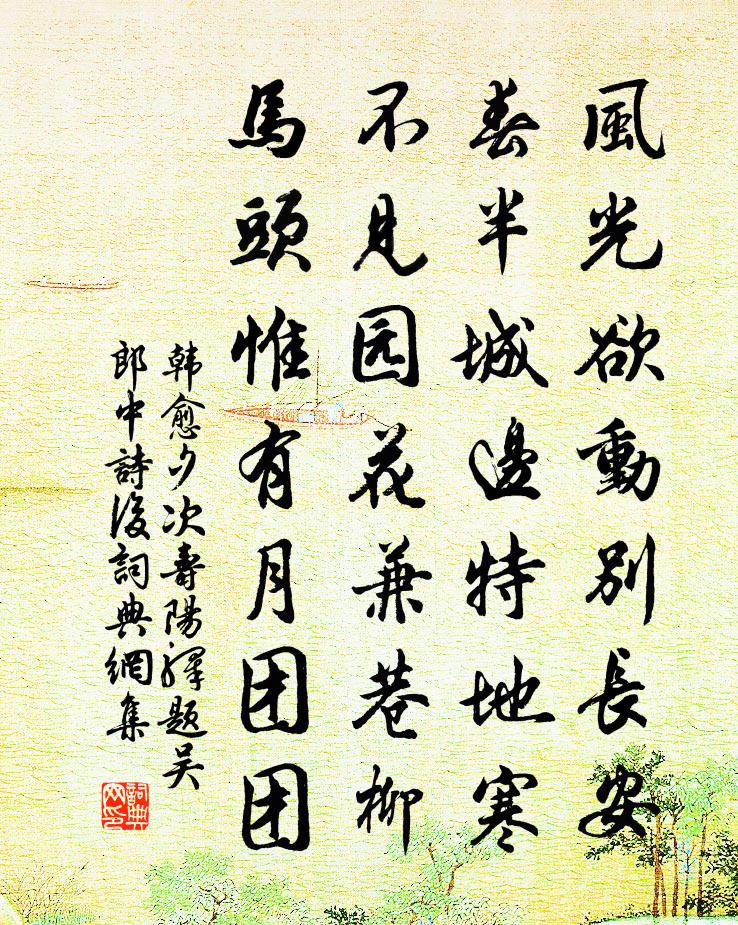 風光欲動別長安
春半城邊特地寒
不見园花兼巷柳
馬頭惟有月团团
韩愈夕次壽陽驛題吴
郎中詩後詞典網集
詞典
网印